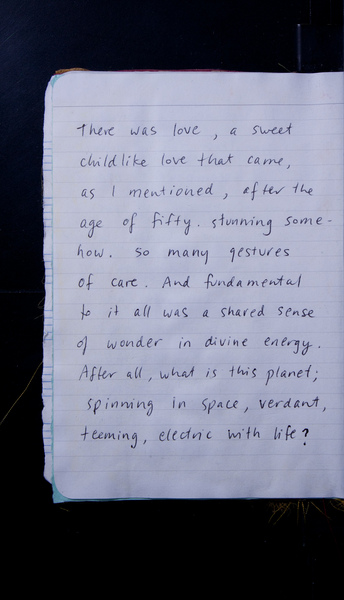 There was love, a sweet
childlike love that came,
as I mentioned, after the
age of fifty. stunning some-
how. so many gestures
of care. And fundamental
to it all was a shared sense
of wonder in divine energy.
After all, what is this planet;
spinning in space, verdant,
teeming, electric with life?